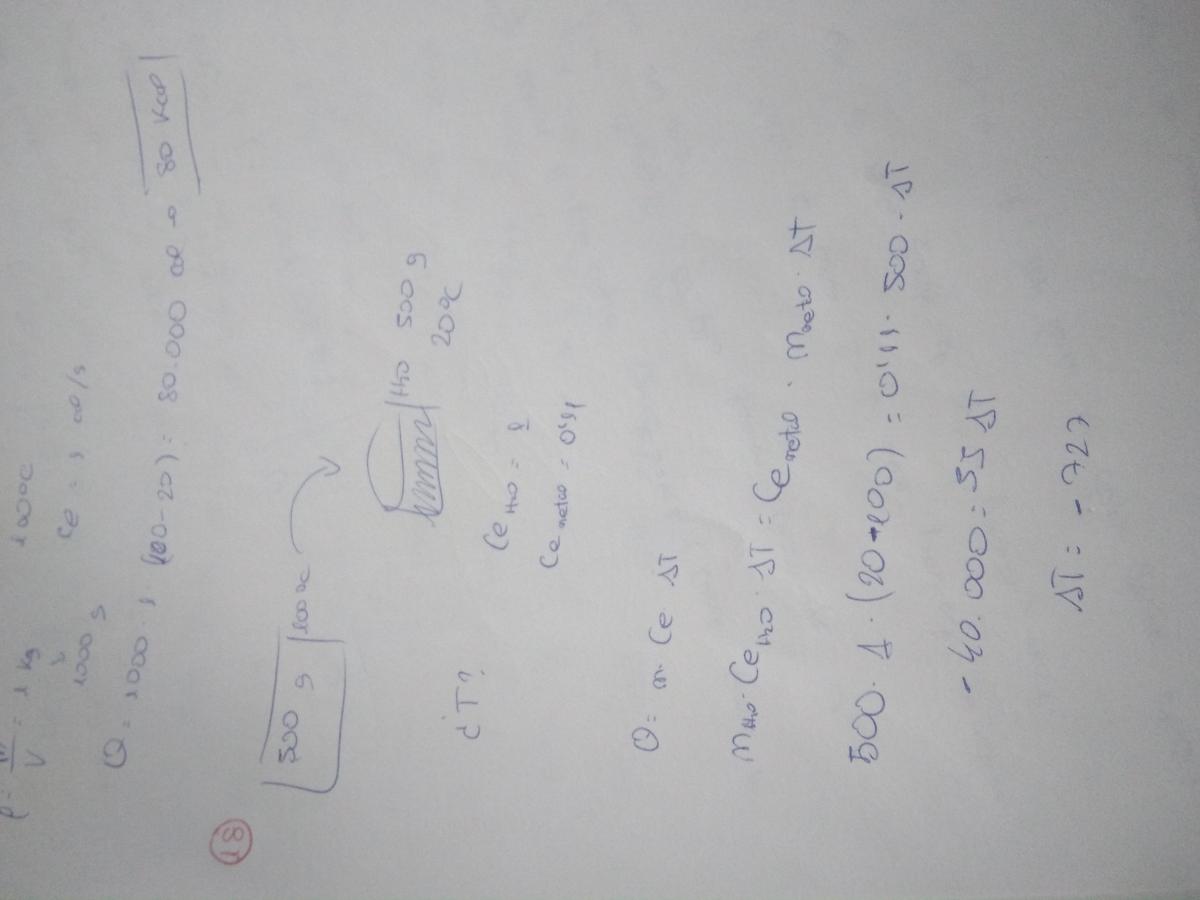 ρ = m/V = 1 kg 100ºC
1000 g Ce = 1 cal/g
Q = 1000 · 1 (100-20) = 80.000 cal → 80 Kcal
18
500 g 100ºC
H₂O 500 g
20ºC
¿T?
Ce H₂O = 1
Ce metal = 0'11
Q = m · Ce ΔT
m H₂O · Ce H₂O · ΔT = Ce metal · m metal · ΔT
500 · 1 · (20-100) = 0'11 · 500 · ΔT
-40.000 = 55 ΔT
ΔT = -727